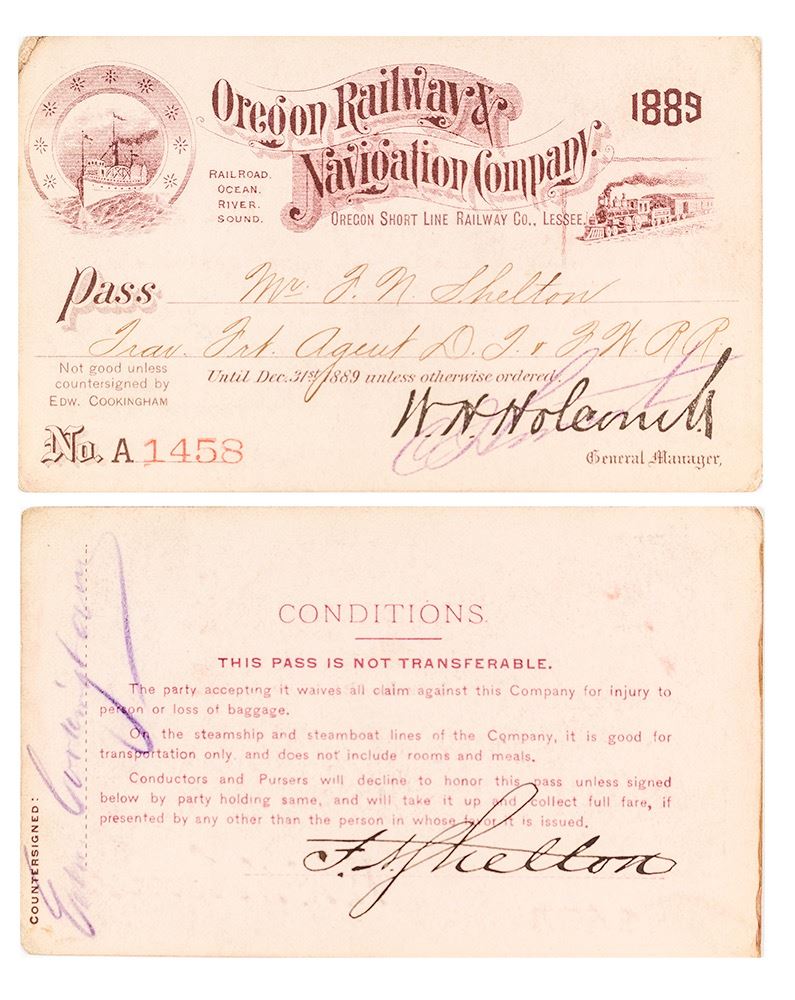 Oregon Railway &
Navigation Company.
1889
RAILROAD.
OCEAN.
RIVER.
SOUND.
OREGON SHORT LINE RAILWAY CO., LESSEE.
Pass Mr. F. N. Shelton
Trav. Frt. Agent D. T. & F. W. R R.
Until Dec. 31st 1889 unless otherwise ordered.
Not good unless
countersigned by
EDW. COOKINGHAM
W. H. Holcomb
General Manager,
No. A 1458
CONDITIONS.
THIS PASS IS NOT TRANSFERABLE.
The party accepting it waives all claim against this Company for injury to
person or loss of baggage.
On the steamship and steamboat lines of the Company, it is good for
transportation only, and does not include rooms and meals.
Conductors and Pursers will decline to honor this pass unless signed
below by party holding same, and will take it up and collect full fare, if
presented by any other than the person in whose favor it is issued.
F. N. Shelton
COUNTERSIGNED:
Edw. Cookingham